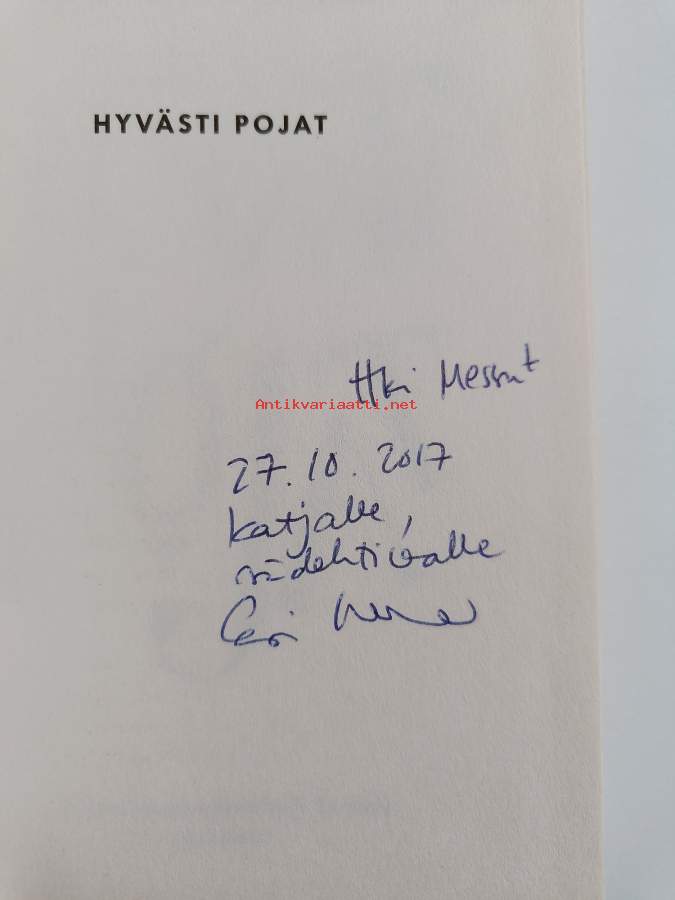 HYVÄSTI POJAT
Hki Messut
Antikvariaatti.net
27.10.2017
Katjalle,